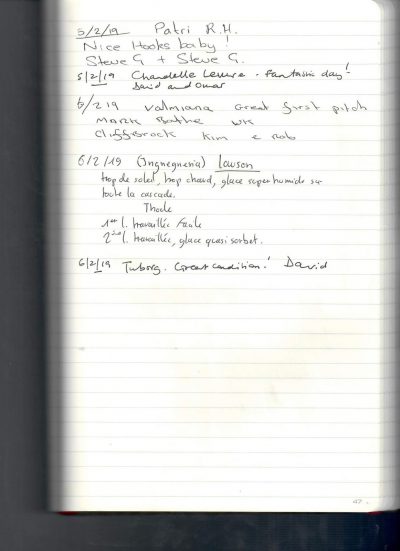 5/2/19 Patri R.H.
Nice Hooks baby!
Steve G + Steve G.
5/2/19 Chandelle Levure - Fantastic day!
David and Omar
5/2/19 Valmiana Great first pitch
Mark Bathe UK
Cliffbrook Kim e Rob
6/2/19 (Ingnegneria) Lawson
trop de soleil, trop chaud, glace super humide sur
toute la cascade.
Thoule
1ère l. travaillée Facile
2ème l. travaillée, glace quasi sorbet.
6/2/19 Tuborg. Great condition! David
47